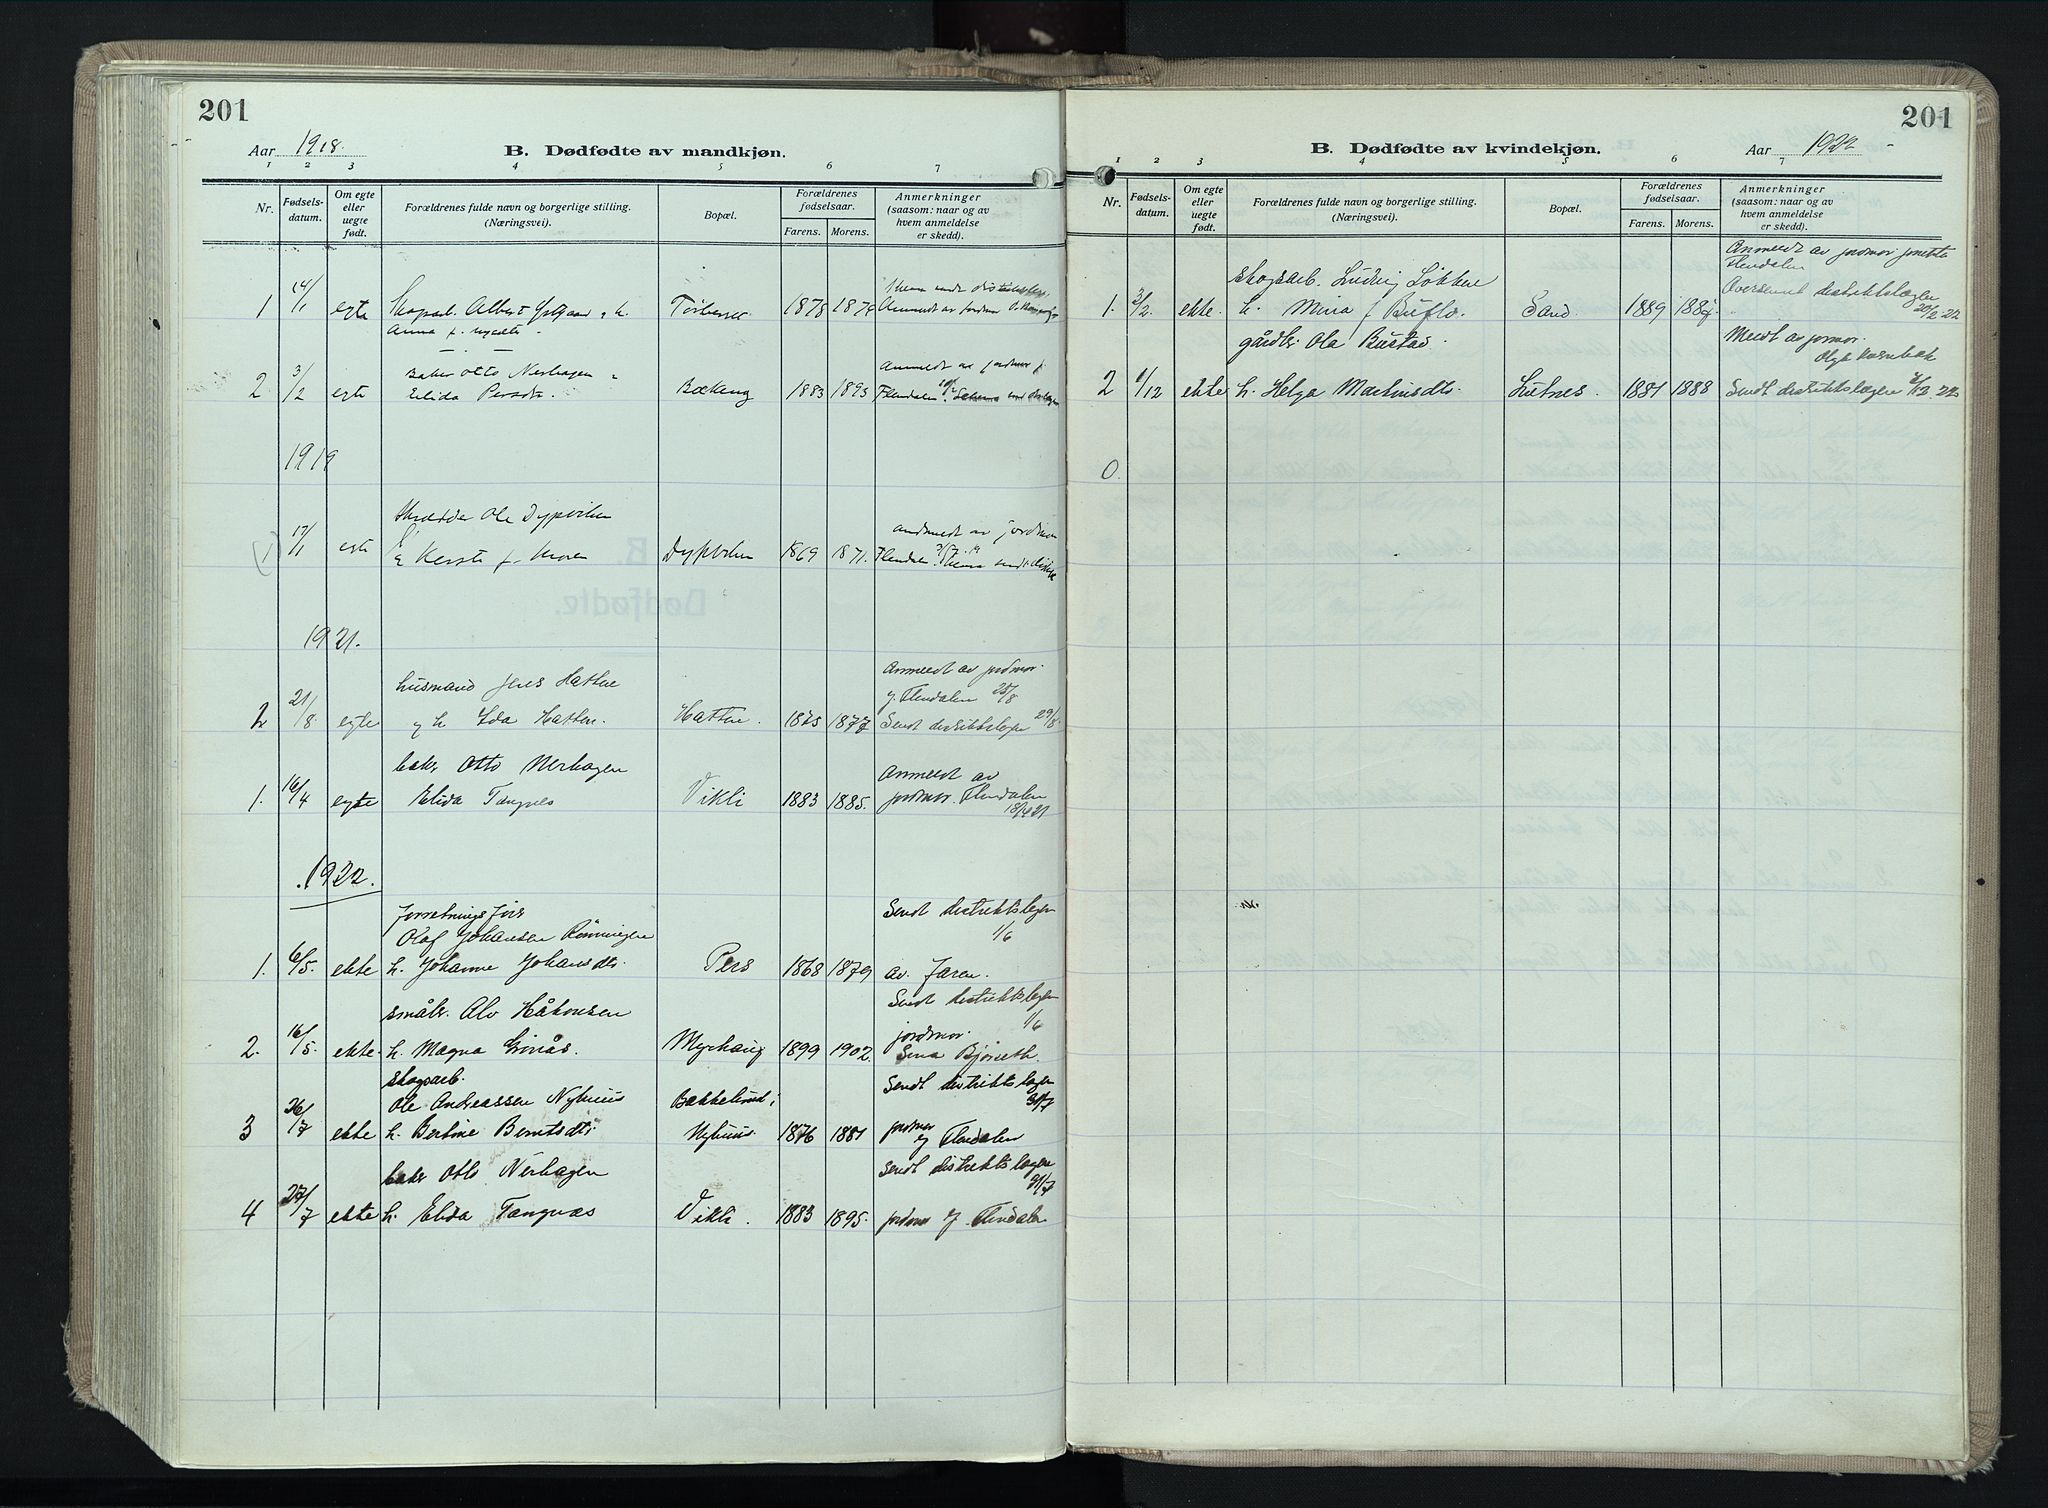 201
Aar 1918.
B. Dødfødte av mandkjøn.
1 2 3 4 5 6 7
Nr.
Fødsels-
datum.
Om egte
eller
uegte
født.
Forældrenes fulde navn og borgerlige stilling.
(Næringsvei).
Bopæl.
Forældrenes
fødselsaar.
Farens. Morens.
Anmerkninger
(saasom: naar og av
hvem anmeldelse
er skedd).
1 14/1 egte Albert 1878
Anna f.
2 3/2 egte Otto Nerhagen 1883 1893
Elida
Flendalen
1919
17/1 egte Ole Dypvilen Dypvilen 1869 1871.
av jordmor
Flendalen
1921.
2 21/8. egte husmand Jens Hatten Hatten. 1875 1877
g h Ida Hatten.
Anmeldt av jordmor.
Flendalen 25/8
Sendt distriktslægen 29/8.
1. 16/4 egte baker Otto Nerhagen Vikli 1883 1885.
Elida Tangnes
Anmeldt av
jordmor. Flendalen
1922.
1. 6/5. ekte forretningsfører
Olaf Johansen Rønningen
h. Johanne Johansdtr. Pers 1868 1879
Sendt distriktslægen
1/6
av. faren.
2. 16/5. ekte. småbr. Alv Håkonsen
h. Magna Grönås. Myrhaug 1899 1902.
Sendt distriktslægen
1/6
jordmor.
Bjørseth.
3 26/7 ekte skogsarb.
Ole Andreassen Nyhuus
h. Bertine Berntsdtr. Bakkelund i
Nyhuus. 1876 1881
Sendt distriktslægen
31/7
jordmor
Flendalen
4 27/7 ekte baker Otto Nerhagen
h. Elida Tangnæs Vikli. 1883 1895.
Sendt distriktslægen
31/7
jordmor Flendalen
201
B. Dødfødte av kvindekjøn.
Aar 1922
1 2 3 4 5 6 7
Nr.
Fødsels-
datum.
Om egte
eller
uegte
født.
Forældrenes fulde navn og borgerlige stilling.
(Næringsvei).
Bopæl.
Forældrenes
fødselsaar.
Farens. Morens.
Anmerkninger
(saasom: naar og av
hvem anmeldelse
er skedd).
1. 2/2. ekte. skogsarb. Ludvig Løkken
h. Mina f. Buflo. Sand. 1889
Anmeldt av jordmor
Flendalen
Oversendt distriktslægen
20/2 22
2 1/12 ekte gårdbr. Ola Bustad.
h. Helga Martinsdtr. Lutnes. 1881 1888
Meldt av jormor.
Sendt distriktslægen 4/12. 22
0.